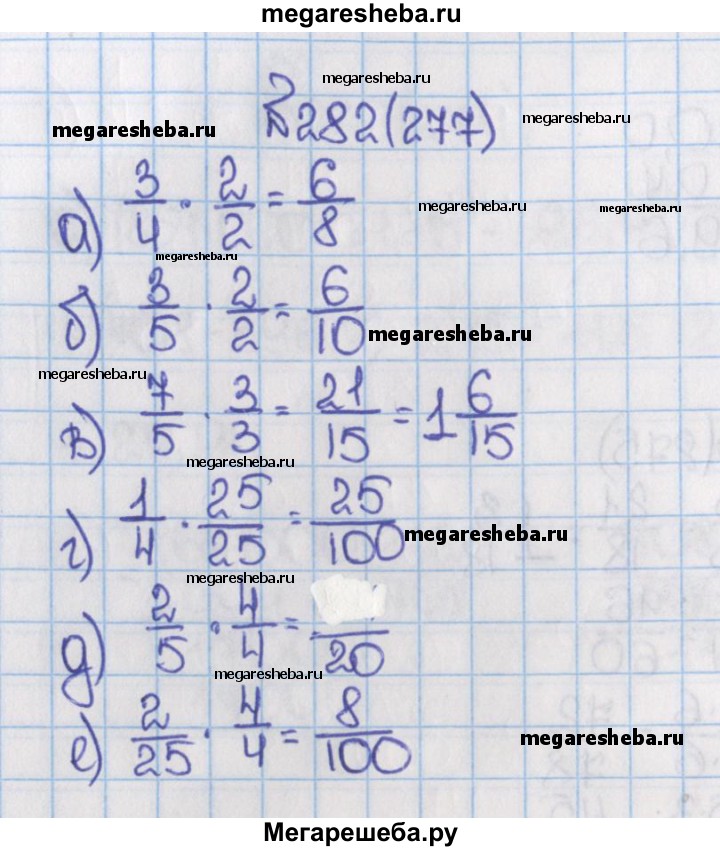 megaresheba.ru
megaresheba.ru
№282(277)
megaresheba.ru
megaresheba.ru
а) 3/4 · 2/2 = 6/8
megaresheba.ru
megaresheba.ru
megaresheba.ru
б) 3/5 · 2/2 = 6/10
megaresheba.ru
megaresheba.ru
в) 7/5 · 3/3 = 21/15 = 1 6/15
megaresheba.ru
г) 1/4 · 25/25 = 25/100
megaresheba.ru
megaresheba.ru
д) 2/5 · 4/4 = /20
megaresheba.ru
е) 2/25 · 4/4 = 8/100
megaresheba.ru
Мегарешеба.ру